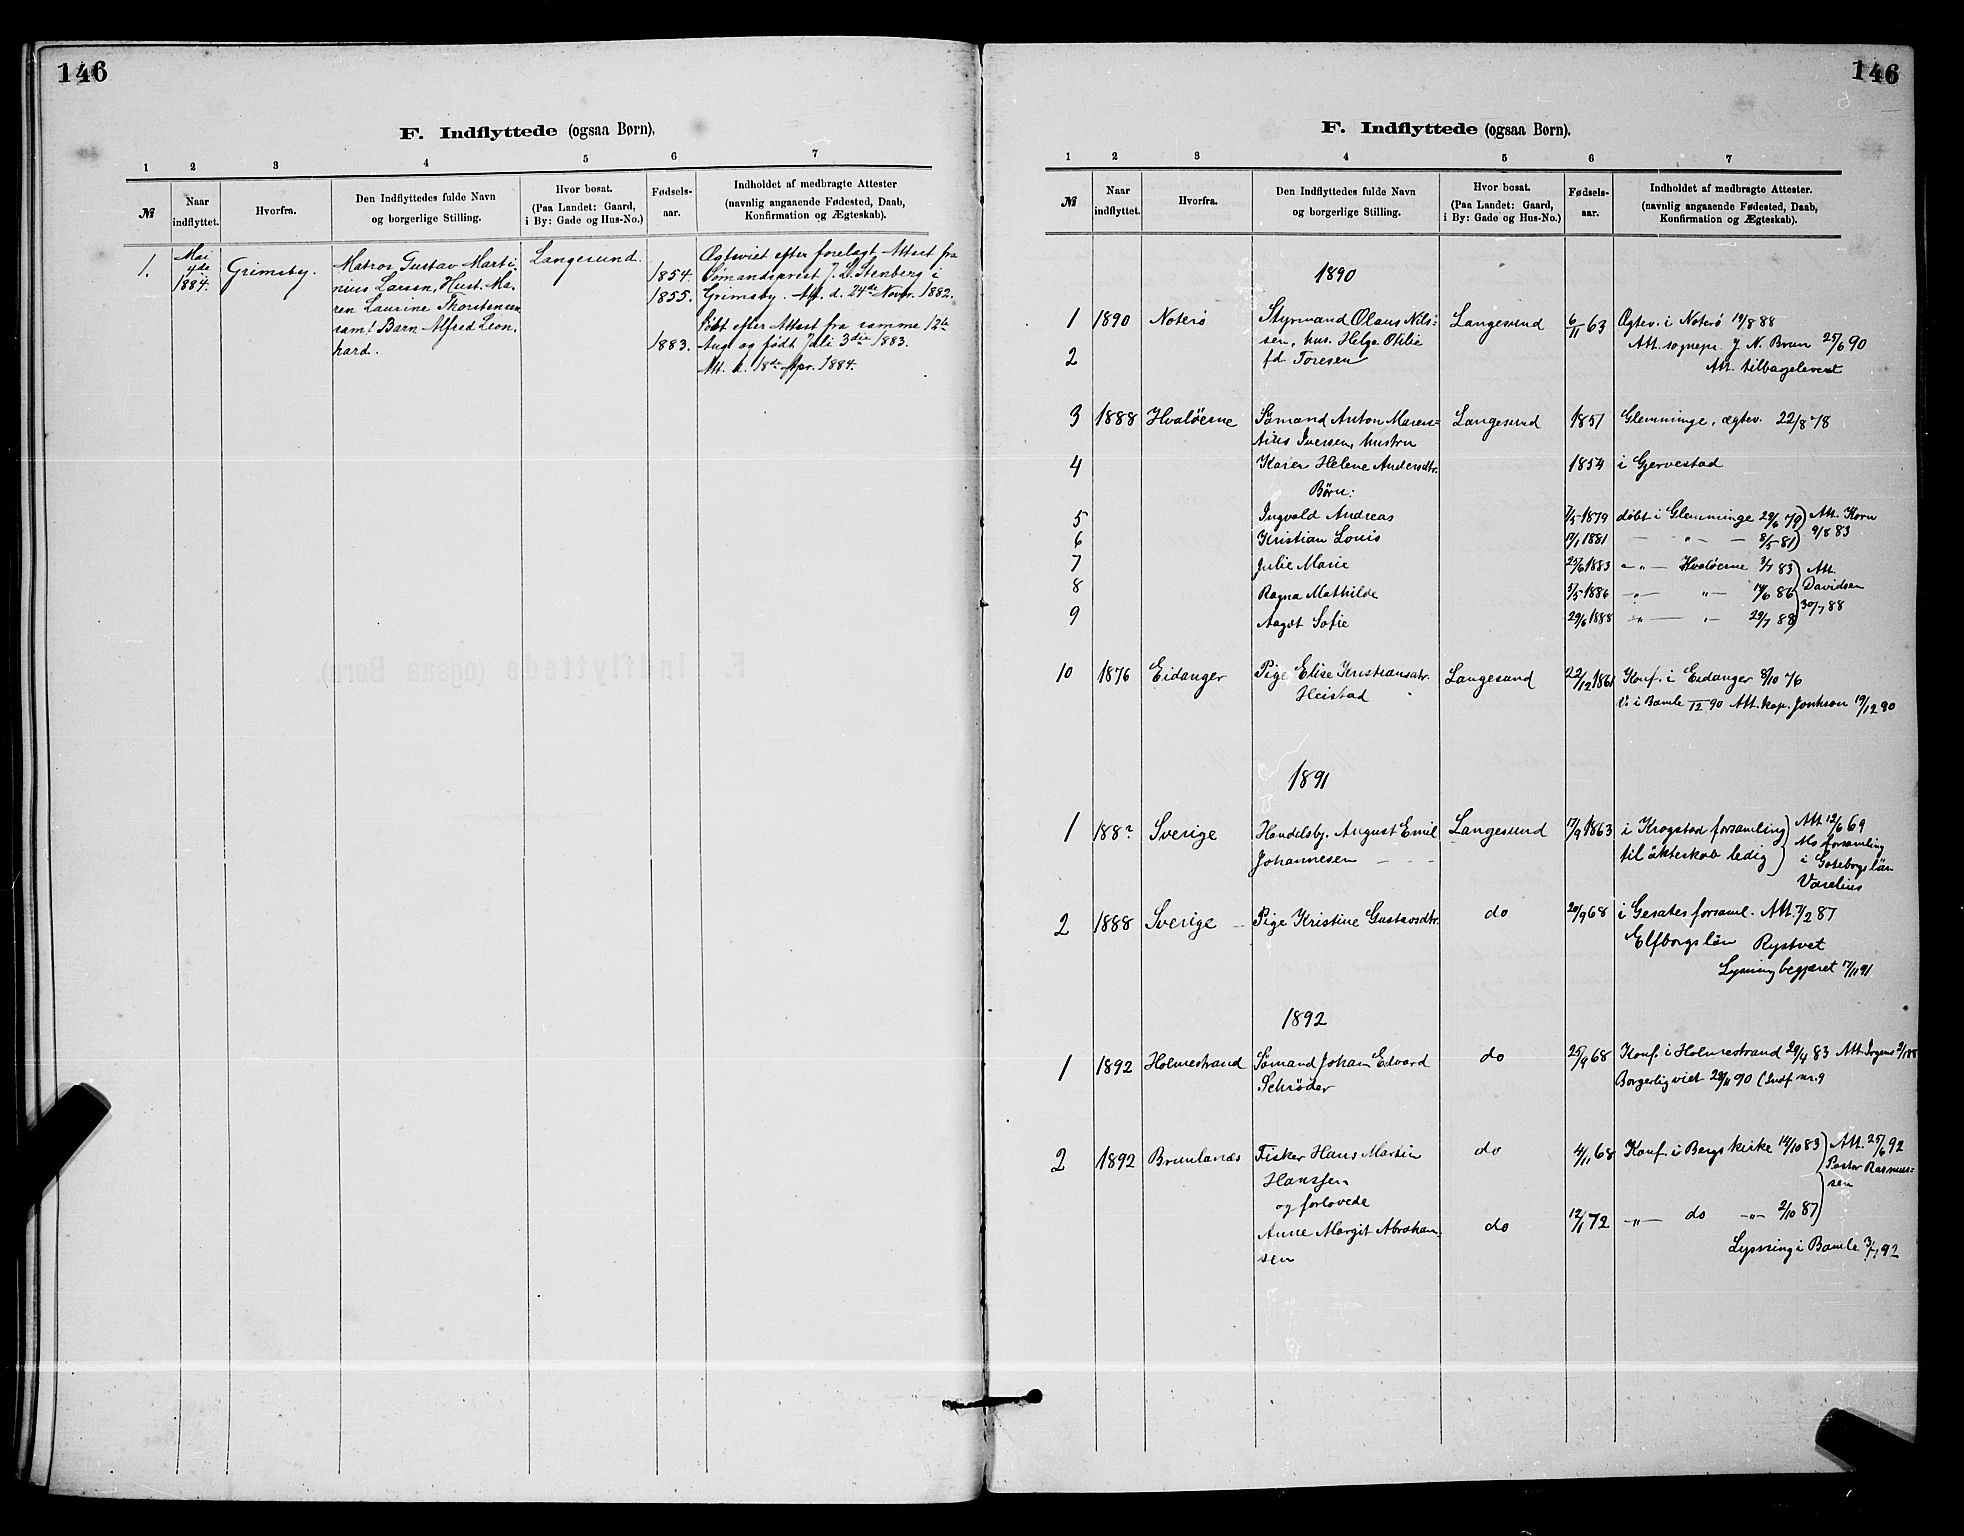 146
F. Indflyttede (ogsaa Børn),
1 2 3 4 5 6 7
№ Naar indflyttet. Hvorfra. Den Indflyttedes fulde Navn og borgerlige Stilling. Hvor bosat. (Paa Landet: Gaard, i By: Gade og Hus-No.) Fødsels-aar. Indholdet af medbragte Attester (navnlig angaaende Fødested, Daab, Konfirmation og Ægteskab).
1. Mai 4de 1884. Grimsby. Matros Gustav Marti- Langesund. Ægteviet efter forelagt Attest fra
nius Larsen, Hust. Ma- 1854. Sømandsprest J. L. Stenberg i
ren Laurine Thorstensen 1855. Grimsby. Att. d. 24de Novr. 1882.
samt Barn Alfred Leon- Døbt efter Attest fra samme 12te
hard. 1883. Aug. og født Juli 3die 1883.
Att. d. 18de Apr. 1884.
146
F. Indflyttede (ogsaa Børn).
1 2 3 4 5 6 7
№ Naar indflyttet. Hvorfra. Den Indflyttedes fulde Navn og borgerlige Stilling. Hvor bosat. (Paa Landet: Gaard, i By: Gade og Hus-No.) Fødsels-aar. Indholdet af medbragte Attester. (navnlig angaaende Fødested, Daab, Konfirmation og Ægteskab).
1890
1 1890 Noterø Styrmand Olaus Nils- Langesund 6/11 63 Ægtev. i Noterø 19/8 88
sen, hus. Helga Othie Att. sognepr. J. N. Brun 25/6 90
2 fd Toresen Att. tilbageleveret
3 1888 Hvaløerne Sømand Anton Maren- Langesund 1851 Glemminge, ægtev. 22/8 78
tius Iversen, hustru
4 Karen Helene Andersdtr. 1854 i Gjervestad
Børn:
5 Ingvald Andreas 7/5 1879 døbt i Glemminge 29/6 79 Att. Korn
6 Kristian Louis 17/1 1881 — „ — 8/5 81 9/8 83
7 Julie Marie 25/6 1883 — „ — Hvaløerne 3/7 83 Att.
8 Ragna Mathilde 5/5 1886 — „ — „ — 14/6 86 Davidsen
9 Aagot Sofie 29/6 1888 „ — „ — 29/7 88 30/7 88
10 1876 Eidanger Pige Elise Kristiansdtr. Langesund 22/12 1861 Konf. i Eidanger 8/10 76
Heistad V. i Bamle 12 90 Att. kap. Jonhson 19/12 90
1891
1 188? Sverige Handelsbj. August Emil Langesund 17/9 1863 i Krogstad forsamling Att 12/6 69
Johannesen til äkteskab ledig Mo forsamling
i Göteborgs län
Varelius
2 1888 Sverige Pige Kristine Gustavsdtr. do 20/9 68 i Gesäters forsaml. Att. 7/2 87
Elfborgs län Rystvet
Lysning begjæret 17/11 91
1892
1 1892 Holmestrand Sømand Johan Edvard do 25/9 68 Konf. i Holmestrand 29/4 83 Att. Irgens
Schrøder Borgerlig viet 28/11 90 (Indf nr. 9
2 1892 Brunlanæs Fisker Hans Martin do 4/1 68 Konf. i Bergs kirke 14/10 83 Att. 25/6 92
Hanssen Pastor Rasmus-
og forlovede sen
Anne Margit Abraham- do 12/1 72 — „ — do — „ — 2/10 87
sen Lysning i Bamle 3/7 92